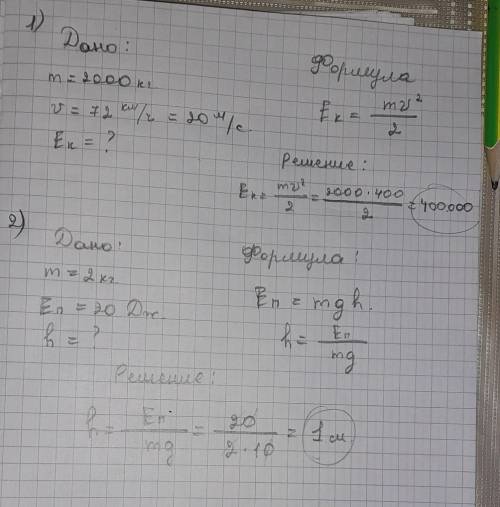 1)
Дано:
m = 2000 кг
v = 72 км/ч = 20 м/с.
Eк = ?
Формула
Eк = mv²/2
Решение:
Eк = mv²/2 = 2000·400/2 = 400.000
2)
Дано:
m = 2 кг
Eп = 20 Дж.
h = ?
Формула:
Eп = mgh.
h = Eп/mg
Решение:
h = Eп/mg = 20/2·10 = 1 м